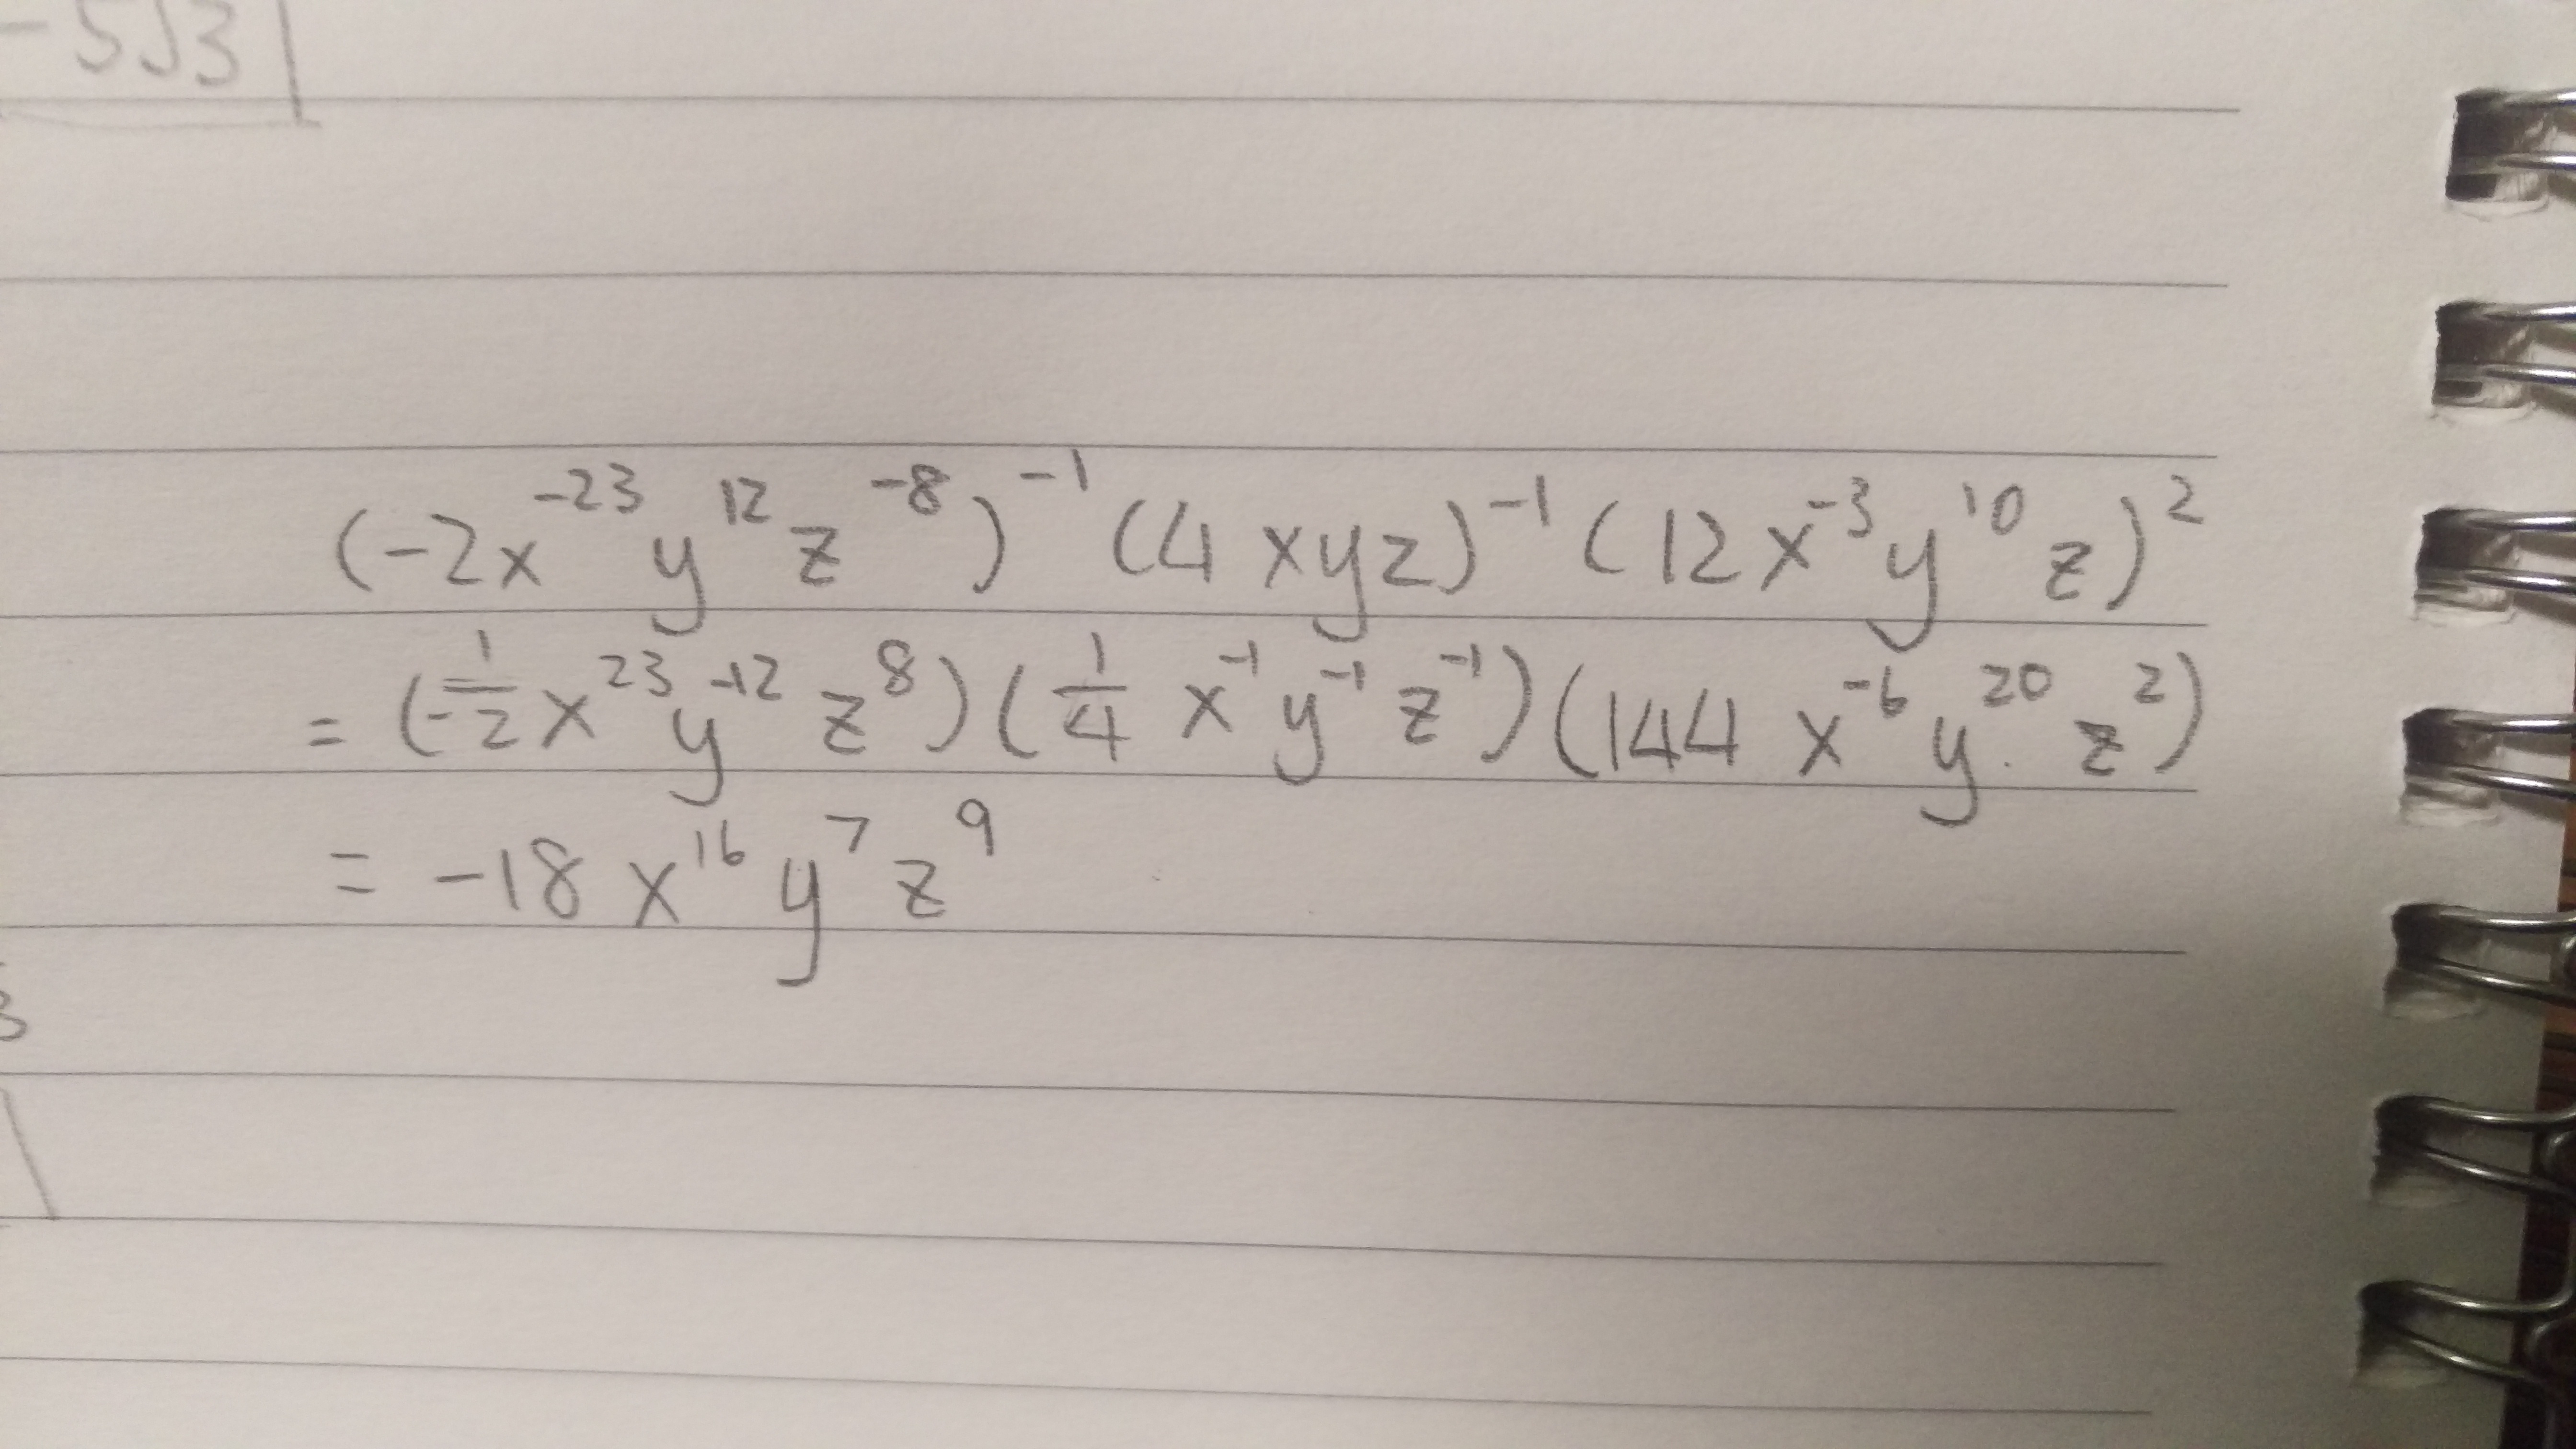 -5√3
(-2x⁻²³y¹²z⁻⁸)⁻¹(4xyz)⁻¹(12x⁻³y¹⁰z)²
= (1/-2 x²³y⁻¹²z⁸)(1/4 x⁻¹y⁻¹z⁻¹)(144x⁻⁶y²⁰z²)
= -18x¹⁶y⁷z⁹
3